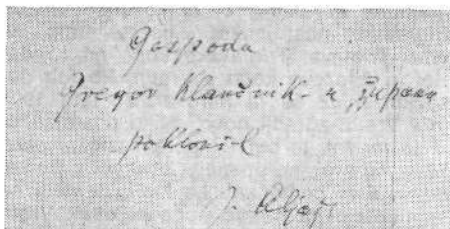 Gospodu
Gregor Klančnik-u, županu
poklonil
J. Aljaž